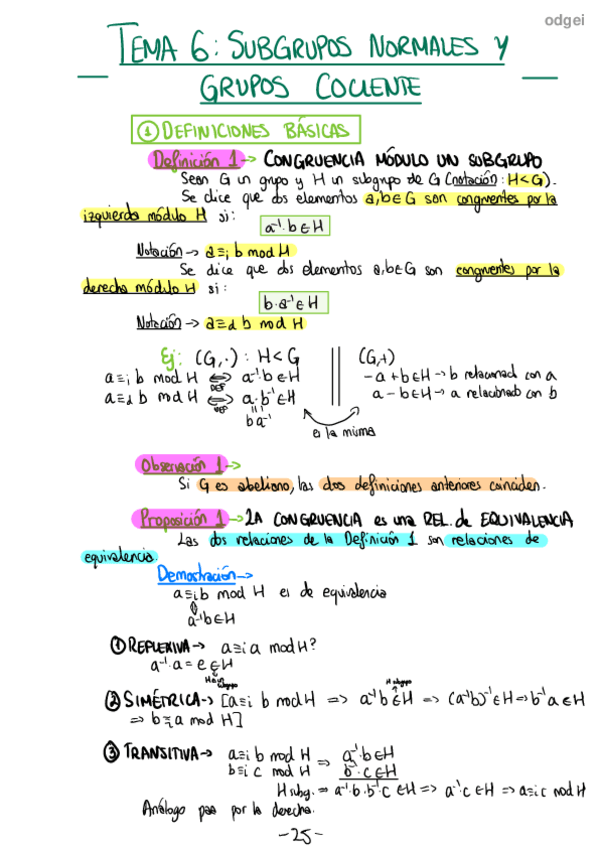 odgei
TEMA 6: SUBGRUPOS NORMALES Y
GRUPOS COCIENTE
① DEFINICIONES BÁSICAS
Definición 1 → CONGRUENCIA MÓDULO UN SUBGRUPO
Sean G un grupo y H un subgrupo de G (notación: H<G).
Se dice que dos elementos a,b∈G son congruentes por la
izquierda módulo H si:
a⁻¹·b∈H
Notación → a≡ᵢ b mod H
Se dice que dos elementos a,b∈G son congruentes por la
derecha módulo H si:
b·a⁻¹∈H
Notación → a≡d b mod H
Ej: (G,·) : H<G (G,+)
a≡ᵢ b mod H ⇔ a⁻¹·b∈H -a+b∈H → b relacionado con a
DEF
a≡d b mod H ⇔ a·b⁻¹∈H a-b∈H → a relacionado con b
DEF
ba⁻¹
es la misma
Observación 1 →
Si G es abeliano, las dos definiciones anteriores coinciden.
Proposición 1 → LA CONGRUENCIA es una REL. de EQUIVALENCIA
Las dos relaciones de la Definición 1 son relaciones de
equivalencia.
Demostración →
a≡ᵢ b mod H es de equivalencia
⇕
a⁻¹b∈H
① REFLEXIVA → a≡ᵢ a mod H?
a⁻¹·a = e ∈ H
H es subgrupo
H subgrupo
② SIMÉTRICA → [a≡ᵢ b mod H ⇒ a⁻¹b∈H ⇒ (a⁻¹b)⁻¹∈H ⇒ b⁻¹a∈H
⇒ b≡ᵢ a mod H]
③ TRANSITIVA → a≡ᵢ b mod H ⇒ a⁻¹·b∈H
b≡ᵢ c mod H b⁻¹·c∈H
H subg. ⇒ a⁻¹·b·b⁻¹·c∈H ⇒ a⁻¹·c∈H ⇒ a≡ᵢ c mod H
Análogo para por la derecha.
-25-